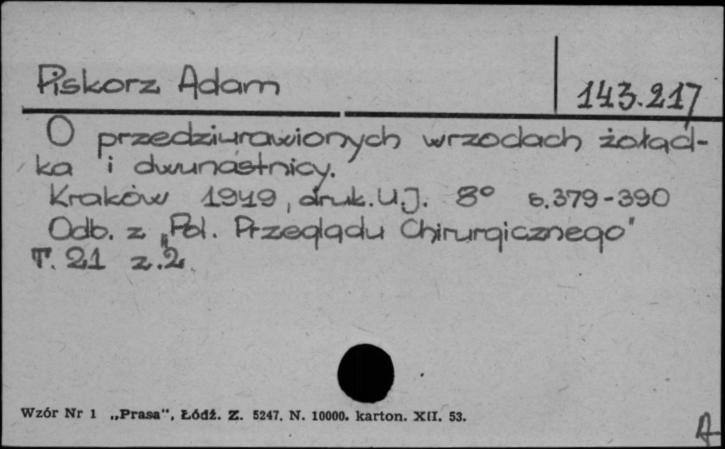 Piskorz Adam
143.217
O przedziurawionych wrzodach żołąd-
ka i dwunastnicy.
Kraków 1949, druk. U.J. 8° s.379-390
Odb. z „Pol. Przeglądu Chirurgicznego"
T. 21 z.2.
Wzór Nr 1 „Prasa", Łódź. Z. 5247. N. 10000. karton. XII. 53.
A